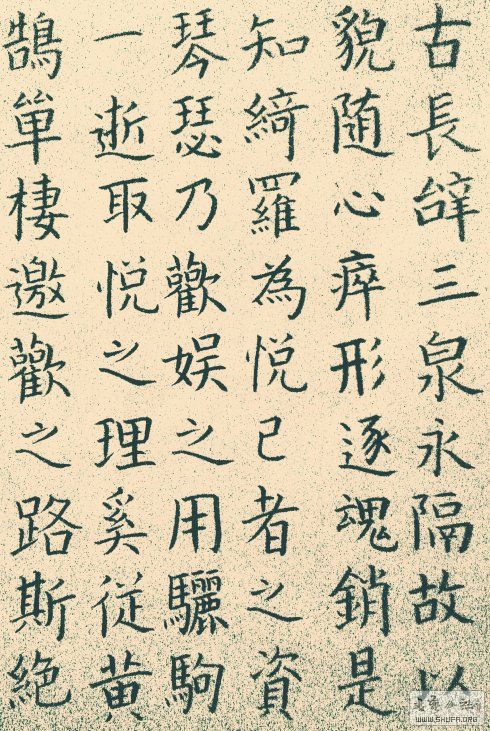 古長辝三泉永隔故以
貌随心瘁形逐魂銷是
知綺羅為悦己者之資
琴瑟乃歡娱之用驪駒
一逝取悦之理奚従黄
鵠單棲邀歡之路斯絶
WWW.SHUFA.ORG